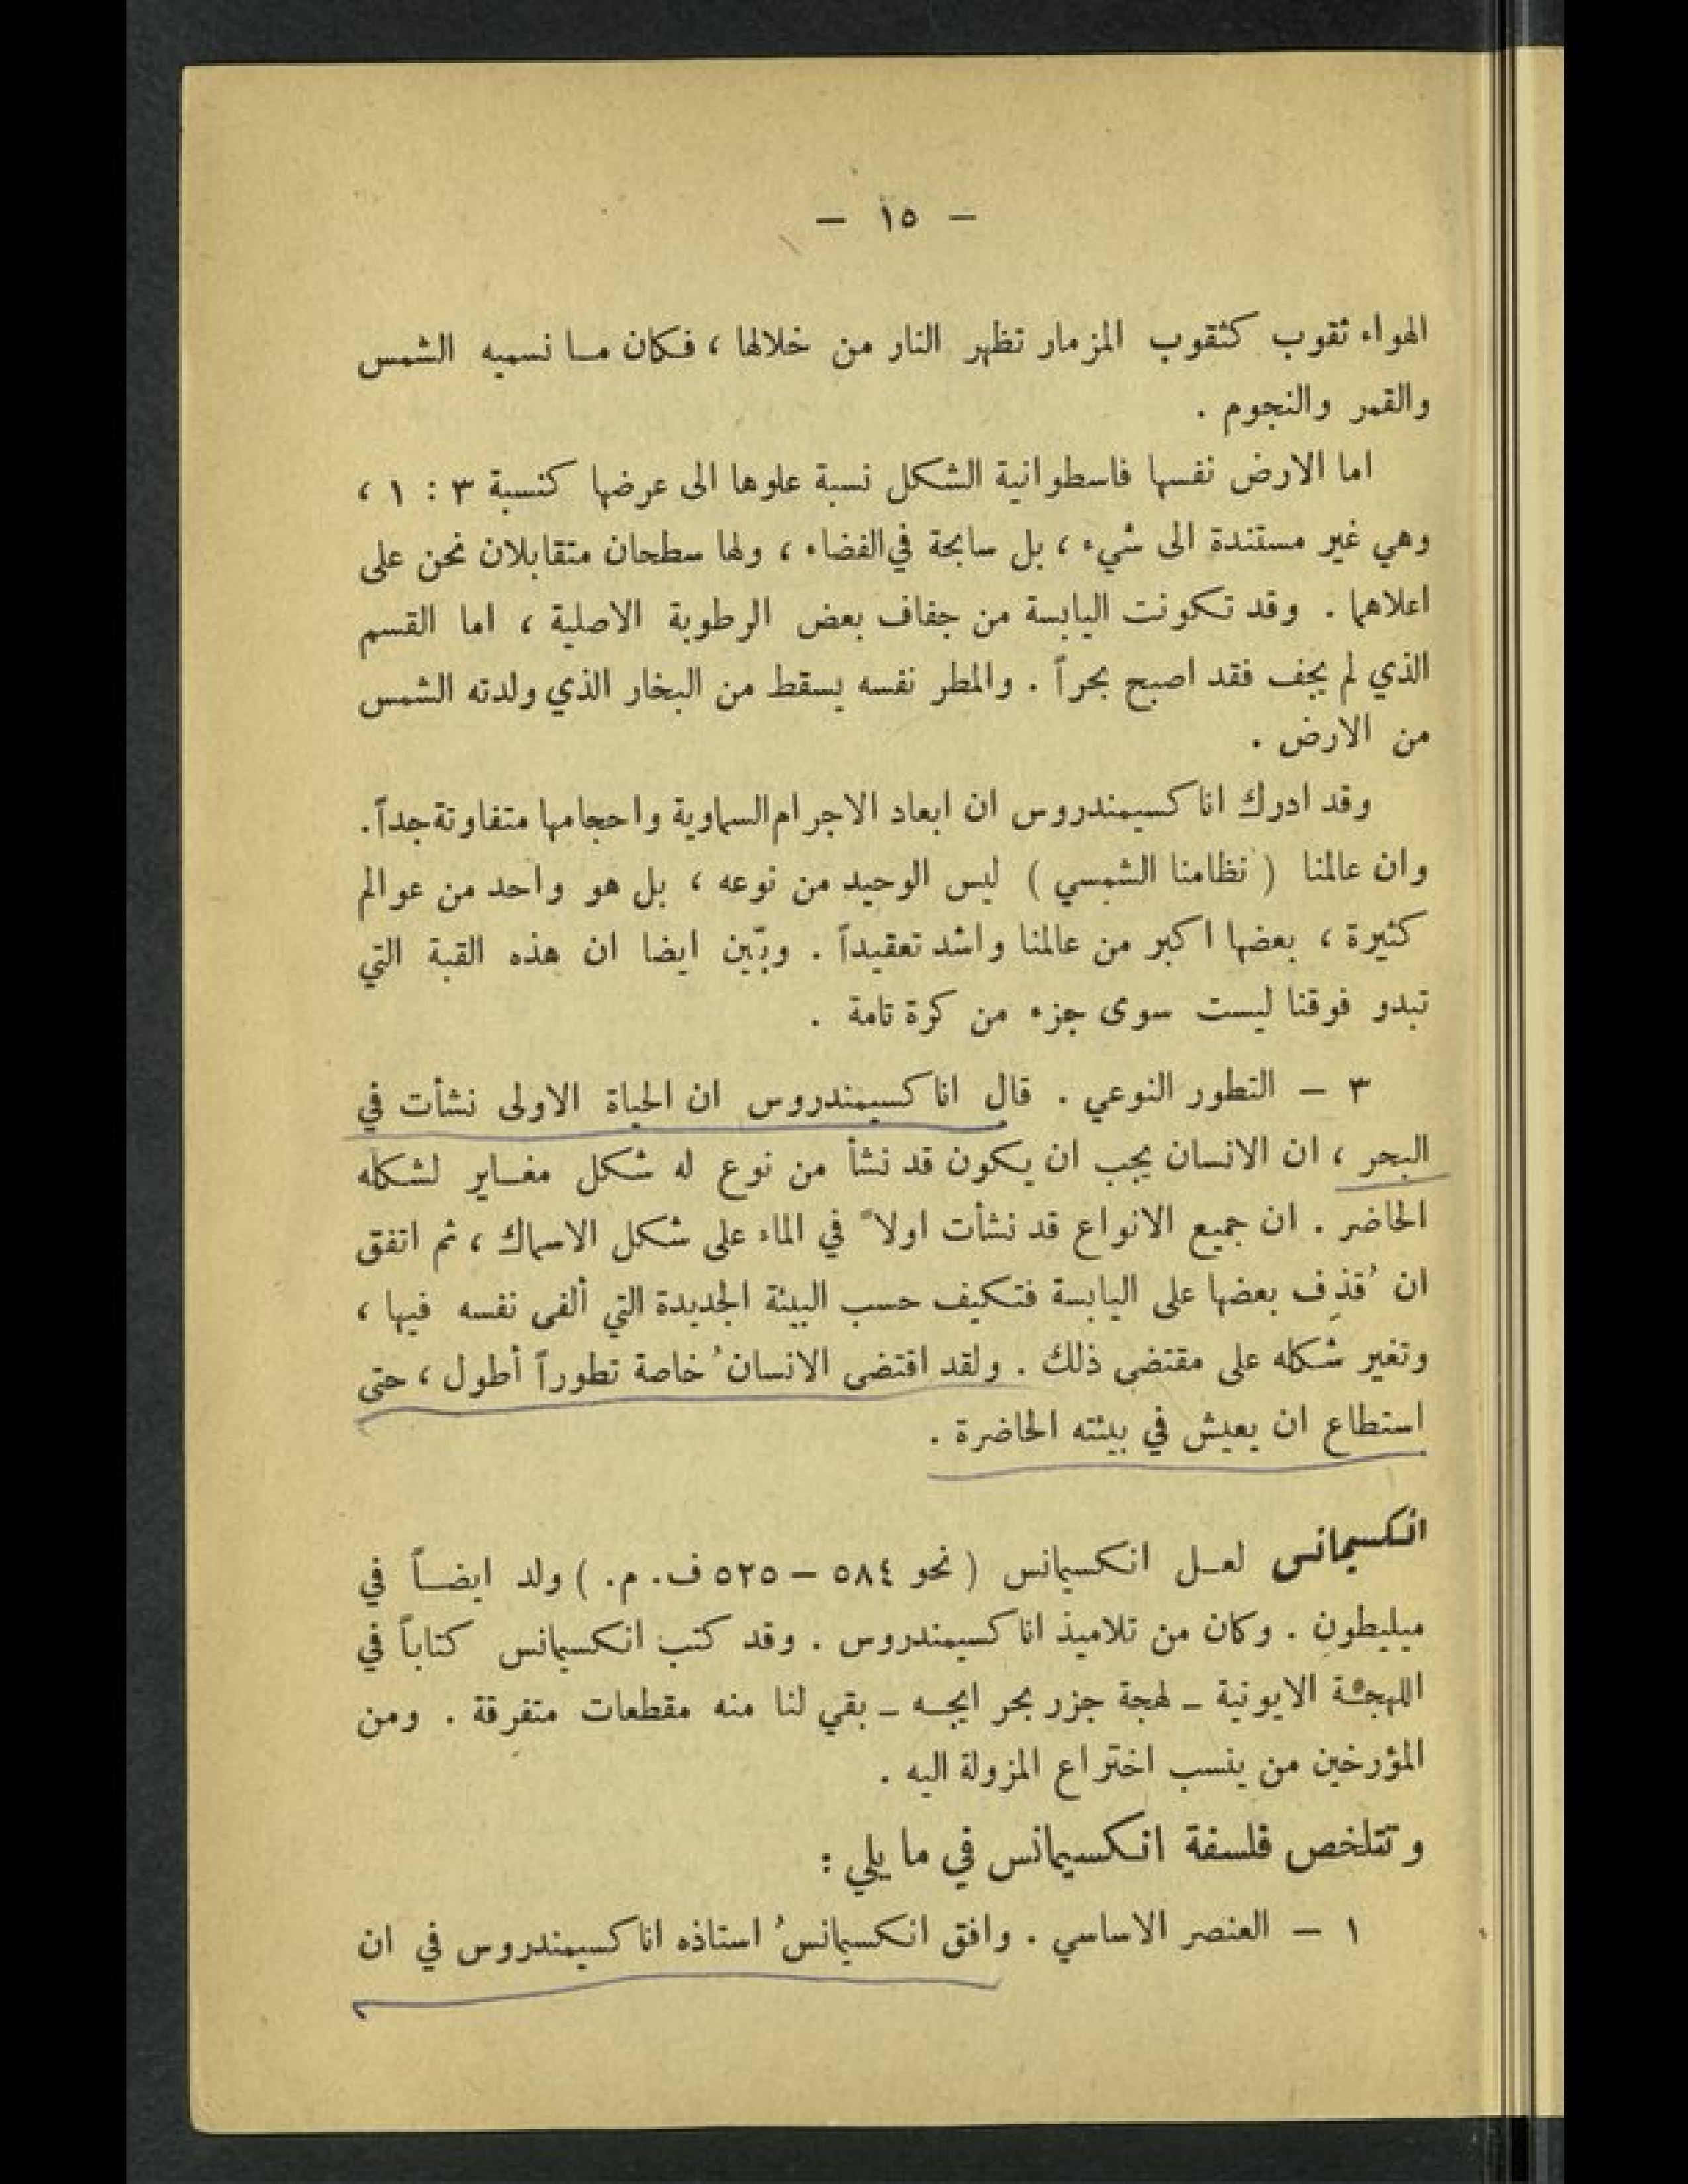 — ١٥ —
الهواء ثقوب كثقوب المزمار تظهر النار من خلالها ، فكان ما نسميه الشمس
والقمر والنجوم .
اما الارض نفسها فاسطوانية الشكل نسبة علوها الى عرضها كنسبة ٣ : ١ ،
وهي غير مستندة الى شيء ، بل سابحة في الفضاء ، ولها سطحان متقابلان نحن على
اعلاهما . وقد تكونت اليابسة من جفاف بعض الرطوبة الاصلية ، اما القسم
الذي لم يجف فقد اصبح بحراً . والمطر نفسه يسقط من البخار الذي ولدته الشمس
من الارض .
وقد ادرك اناكسيمندروس ان ابعاد الاجرام السماوية واحجامها متفاوتة جداً .
وان عالمنا ( نظامنا الشمسي ) ليس الوحيد من نوعه ، بل هو واحد من عوالم
كثيرة ، بعضها اكبر من عالمنا واشد تعقيداً . وبّين ايضا ان هذه القبة التي
تبدو فوقنا ليست سوى جزء من كرة تامة .
٣ — التطور النوعي . قال اناكسيمندروس ان الحياة الاولى نشأت في
البحر ، ان الانسان يجب ان يكون قد نشأ من نوع له شكل مغاير لشكله
الحاضر . ان جميع الانواع قد نشأت اولاً في الماء على شكل الاسماك ، ثم اتفق
ان ُقذِف بعضها على اليابسة فتكيف حسب البيئة الجديدة التي ألفى نفسه فيها ،
وتغير شكله على مقتضى ذلك . ولقد اقتضى الانسانُ خاصة تطوراً أطول ، حتى
استطاع ان يعيش في بيئته الحاضرة .
انكسيمانس لعل انكسيمانس ( نحو ٥٨٤ — ٥٢٥ ف. م. ) ولد ايضاً في
ميليطون . وكان من تلاميذ اناكسيمندروس . وقد كتب انكسيمانس كتاباً في
اللهجة الايونية ـ لهجة جزر بحر ايجه ـ بقي لنا منه مقطعات متفرقة . ومن
المؤرخين من ينسب اختراع المزولة اليه .
وتتلخص فلسفة انكسيمانس في ما يلي :
١ — العنصر الاساسي . وافق انكسيمانسُ استاذه اناكسيمندروس في ان